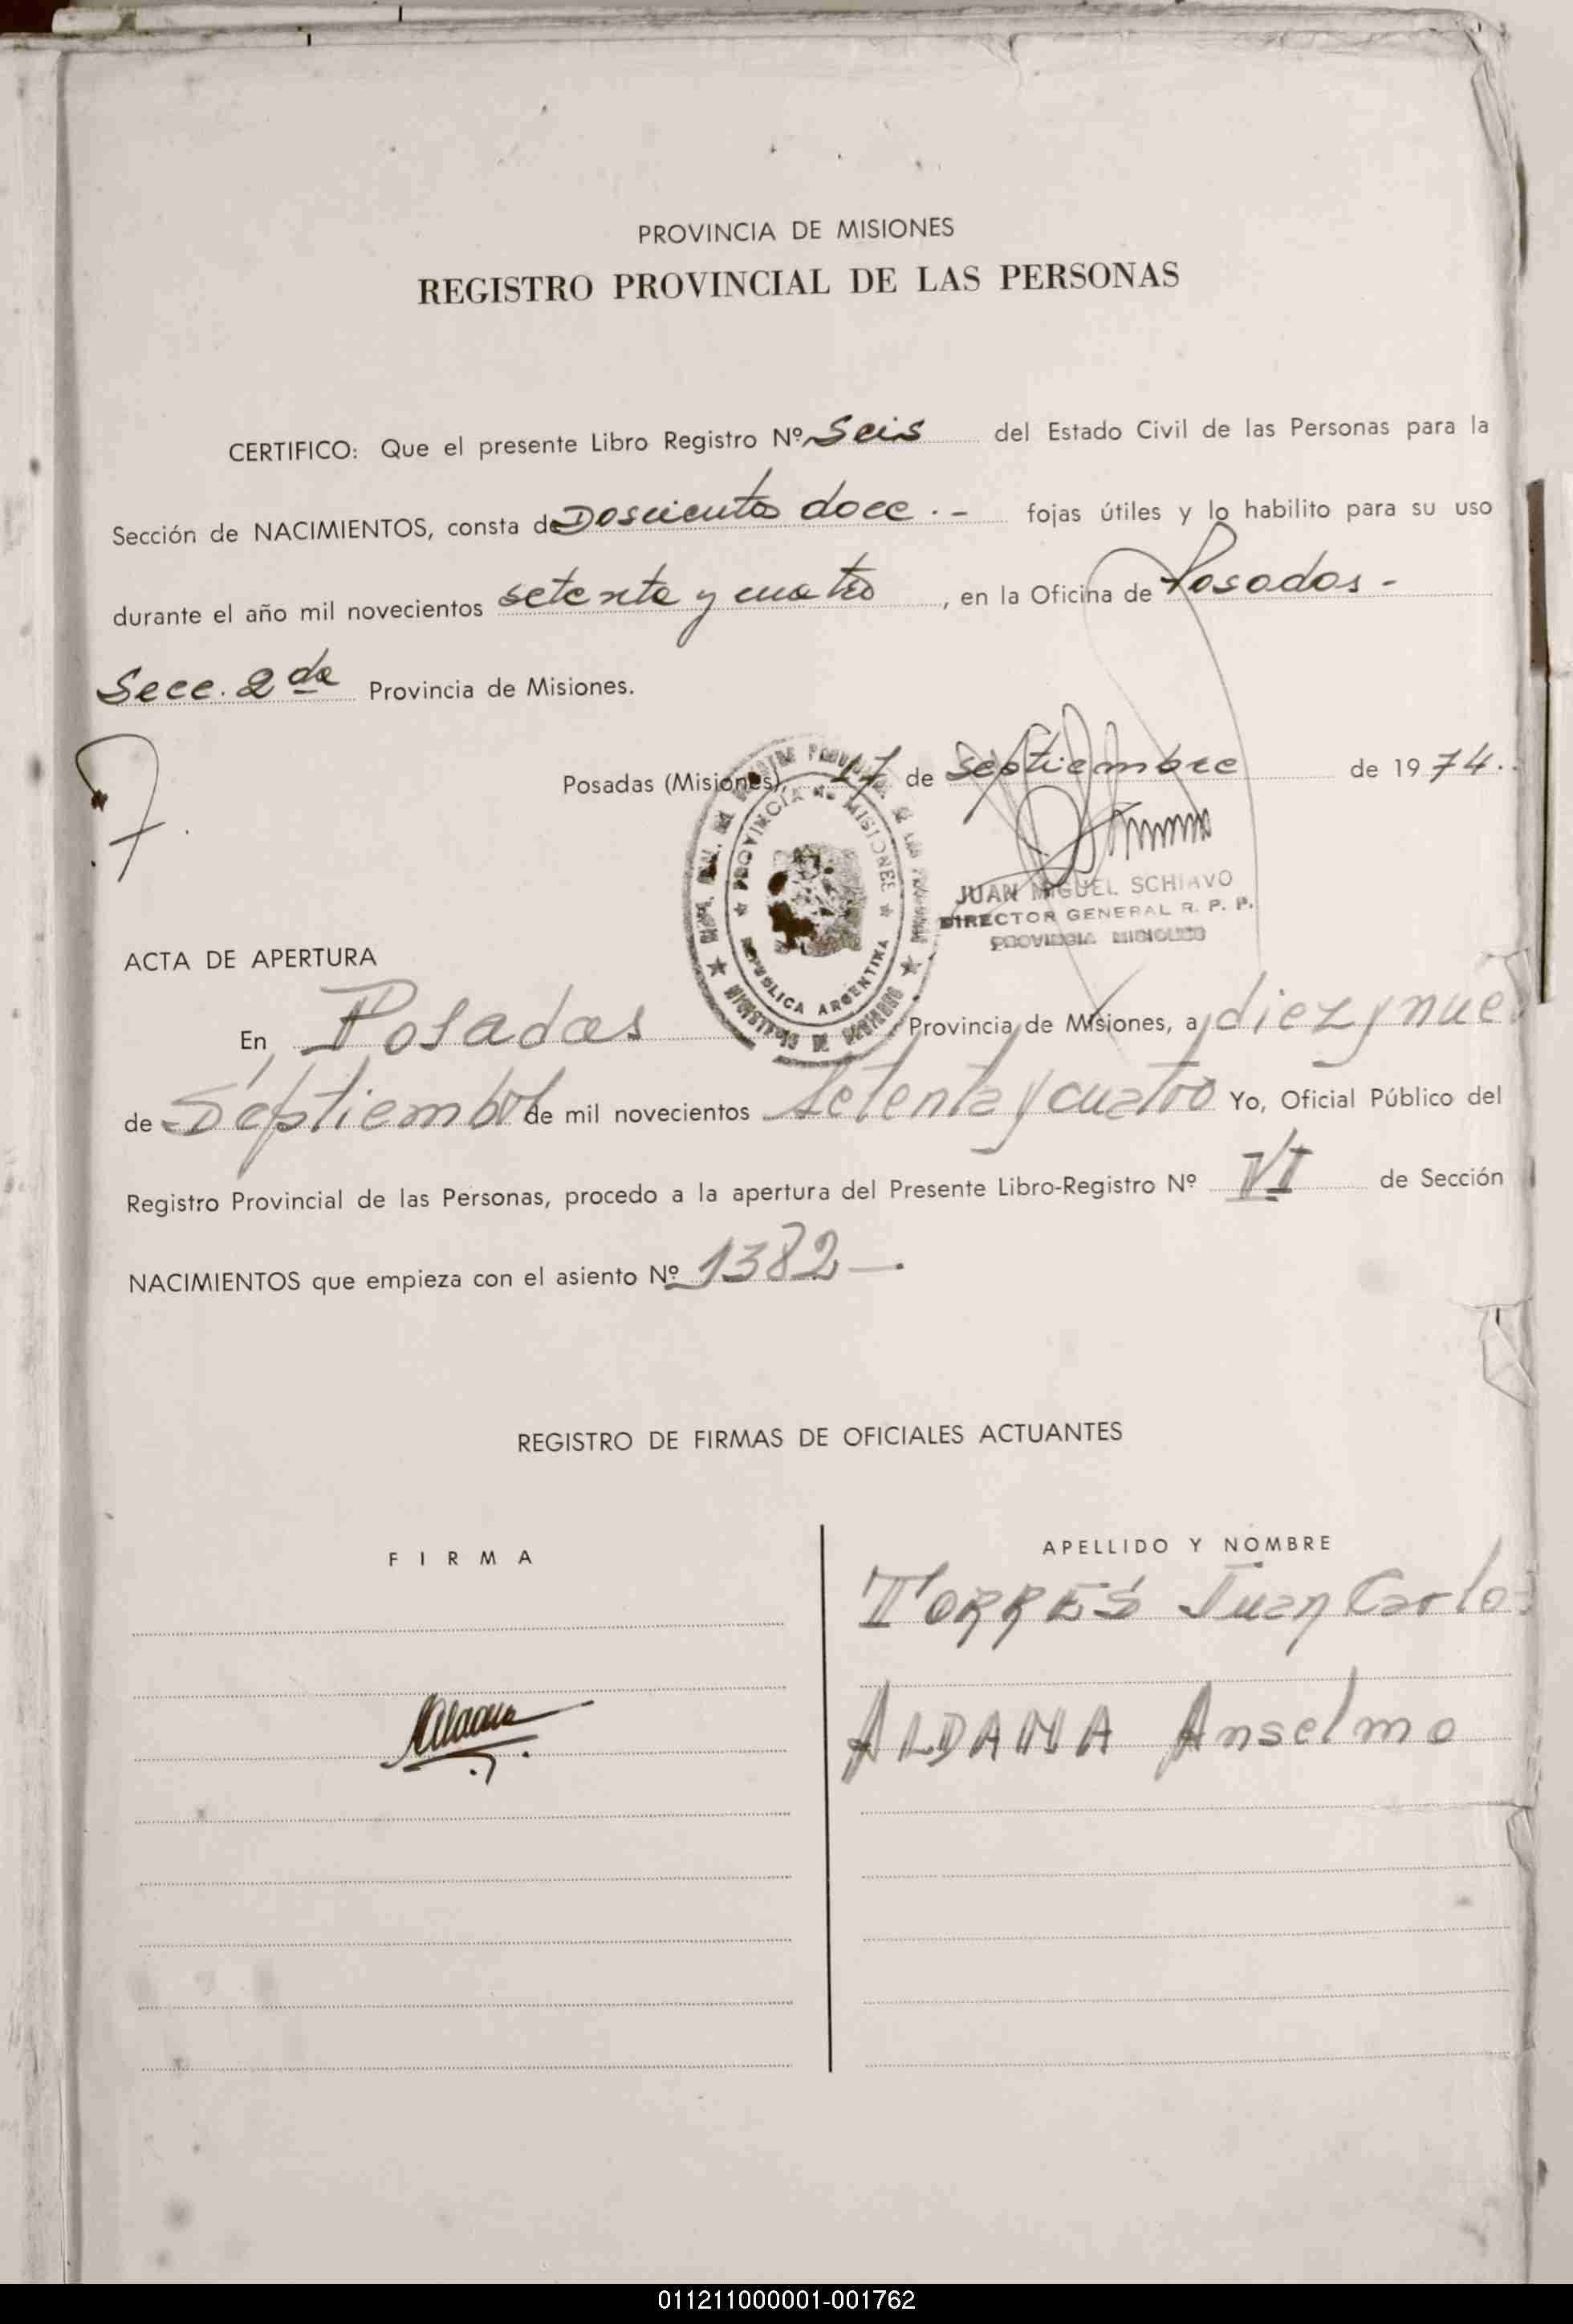 PROVINCIA DE MISIONES
REGISTRO PROVINCIAL DE LAS PERSONAS
CERTIFICO: Que el presente Libro Registro Nº Seis del Estado Civil de las Personas para la
Sección de NACIMIENTOS, consta de Doscientos doce . - fojas útiles y lo habilito para su uso
durante el año mil novecientos setenta y cuatro, en la Oficina de Posadas -
Secc. 2da Provincia de Misiones.
Posadas (Misiones), 17 de Septiembre de 1974.
PROVINCIA de MISIONES
REPUBLICA ARGENTINA
MINISTERIO DE GOBIERNO
JUAN MIGUEL SCHIAVO
DIRECTOR GENERAL R. P. P.
PROVINCIA MISIONES
ACTA DE APERTURA
En Posadas Provincia de Misiones, a diez y nue
de Septiembre de mil novecientos setenta y cuatro Yo, Oficial Público del
Registro Provincial de las Personas, procedo a la apertura del Presente Libro-Registro Nº VI de Sección
NACIMIENTOS que empieza con el asiento Nº 1382 —.
REGISTRO DE FIRMAS DE OFICIALES ACTUANTES
FIRMA
APELLIDO Y NOMBRE
TORRES Juan Carlos
ALDANA Anselmo
011211000001-001762